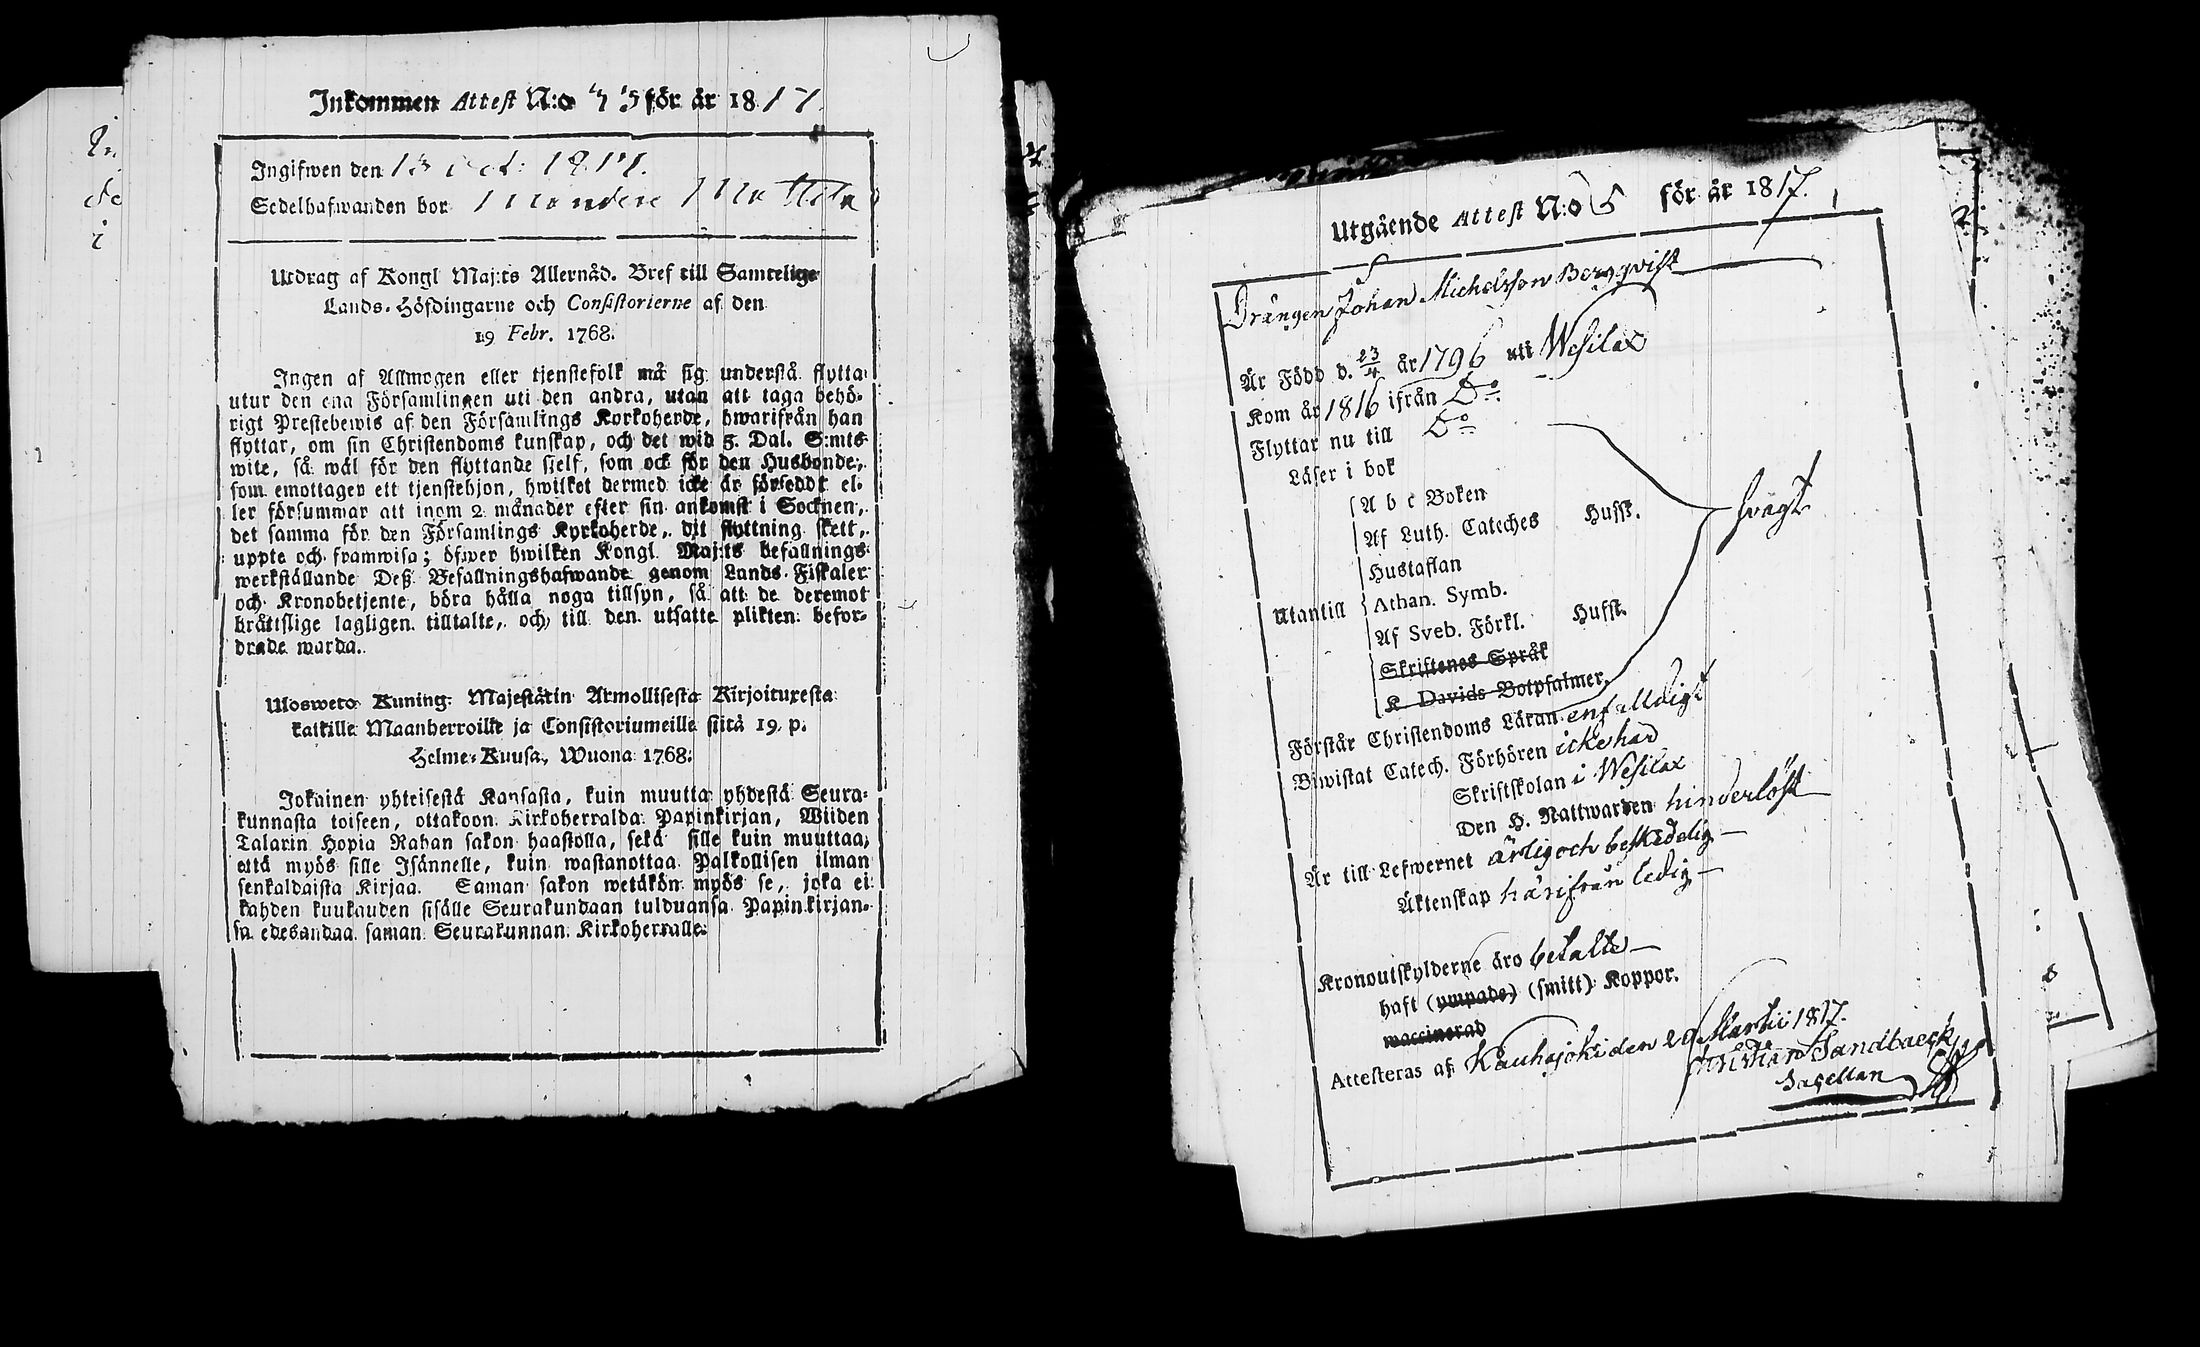 Inkommen Attest N:o 45 för år 1817.
Ingifwen den 13 Oct: 1817.
Sedelhafwanden bor
Utdrag af Kongl Maj:ts Allernåd. Bref till Samtelige
Lands-Höfdingarne och Consistorierne af den
19 Febr. 1768.
Ingen af Allmogen eller tjenstefolk må sig understå flytta
utur den ena Församlingen uti den andra, utan att taga behö-
rigt Prestebewis af den Församlings Korkoherde, hwarifrån han
flyttar, om sin Christendoms kunskap, och det wid 5. Dal. S:mts
wite, så wäl för den flyttande sjelf, som ock för den Husbonde,
som emottager ett tjenstehjon, hwilket dermed icke är försedot el-
ler försummar att inom 2 månader efter sin ankomst i Socknen,
det samma för den Församlings Kyrkoherde, dit flyttning skett,
uppte och framwisa; öfwer hwilken Kongl Maj:ts befallnings
werkställande Deß Befallningshafwande genom Lands-Fiskaler
och Kronobetjente, böra hålla noga tillsyn, så att de deremot
bråttslige lagligen tilltalte, och till den utsatte plikten befor-
drade warda.
Ulosweto Kuning: Majestätin Armollisesta Kirjoituxesta
kaikille Maanherroille ja Consistoriumeille siitä 19. p.
Helme-Kuusa, Wuona 1768.
Jokainen yhteisestä Kansasta, kuin muutta yhdestä Seura-
kunnasta toiseen, ottakoon Kirkoherralda Papinkirjan, Wiiden
Talarin Hopia Rahan sakon haastolla, sekä sille kuin muuttaa,
että myös sille Isännelle, kuin wastanottaa Palkollisen ilman
senkaldaista Kirjaa. Saman sakon wetäkön myös se, joka ei
kahden kuukauden sisälle Seurakundaan tulduansa Papin kirjan-
sa edesandaa saman Seurakunnan Kirkoherralle.
Utgående Attest N:o 5 för år 1817.
Drängen Johan Michelsson Bergqvist
Är Född d. 23/4 år 1796 uti Wesilax
Kom år 1816 ifrån D:o
Flyttar nu till D:o
Läser i bok
A b c Boken
Af Luth. Cateches Hufst.
Hustaflan
Utantill Athan. Symb. svagt
Af Sveb. Förkl. Hufst.
Skriftenes Språk
K. Davids Botpsalmer.
Förstår Christendoms Läran enfalldigt
Biwistat Catech. Förhören icke har
Skriftskolan i Wesilax
Den H. Nattwarden hinderlöst
Är till Lefwernet ärlig och beskedelig
Äktenskap härifrån ledig
Kronoutskylderne äro betalte
haft (ympade) (smitt) Koppor.
waccinerad
Attesteras af Kauhajoki den 29 Martii 1817.
Sandbaeck
Sacellan